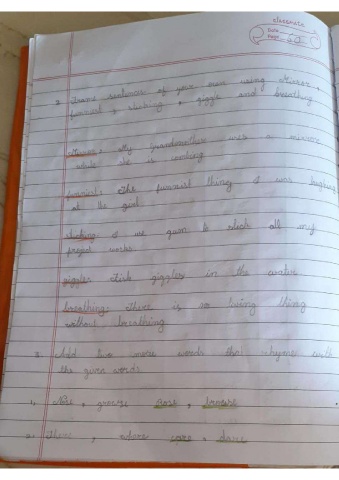 classmate
Date
Page
2. Frame sentences of your own using
funniest, sticking, giggle and breathing
My Grandmother uses a
while she is cooking
funniest:- The funniest thing I was laughing
at the
sticking:- I use gum to stick all my
project works.
giggles in the water
breathing:- There is no living thing
without breathing
3. Add two more words that rhyme with
the given words
1. Nose, grocers
2. there, where care, dare